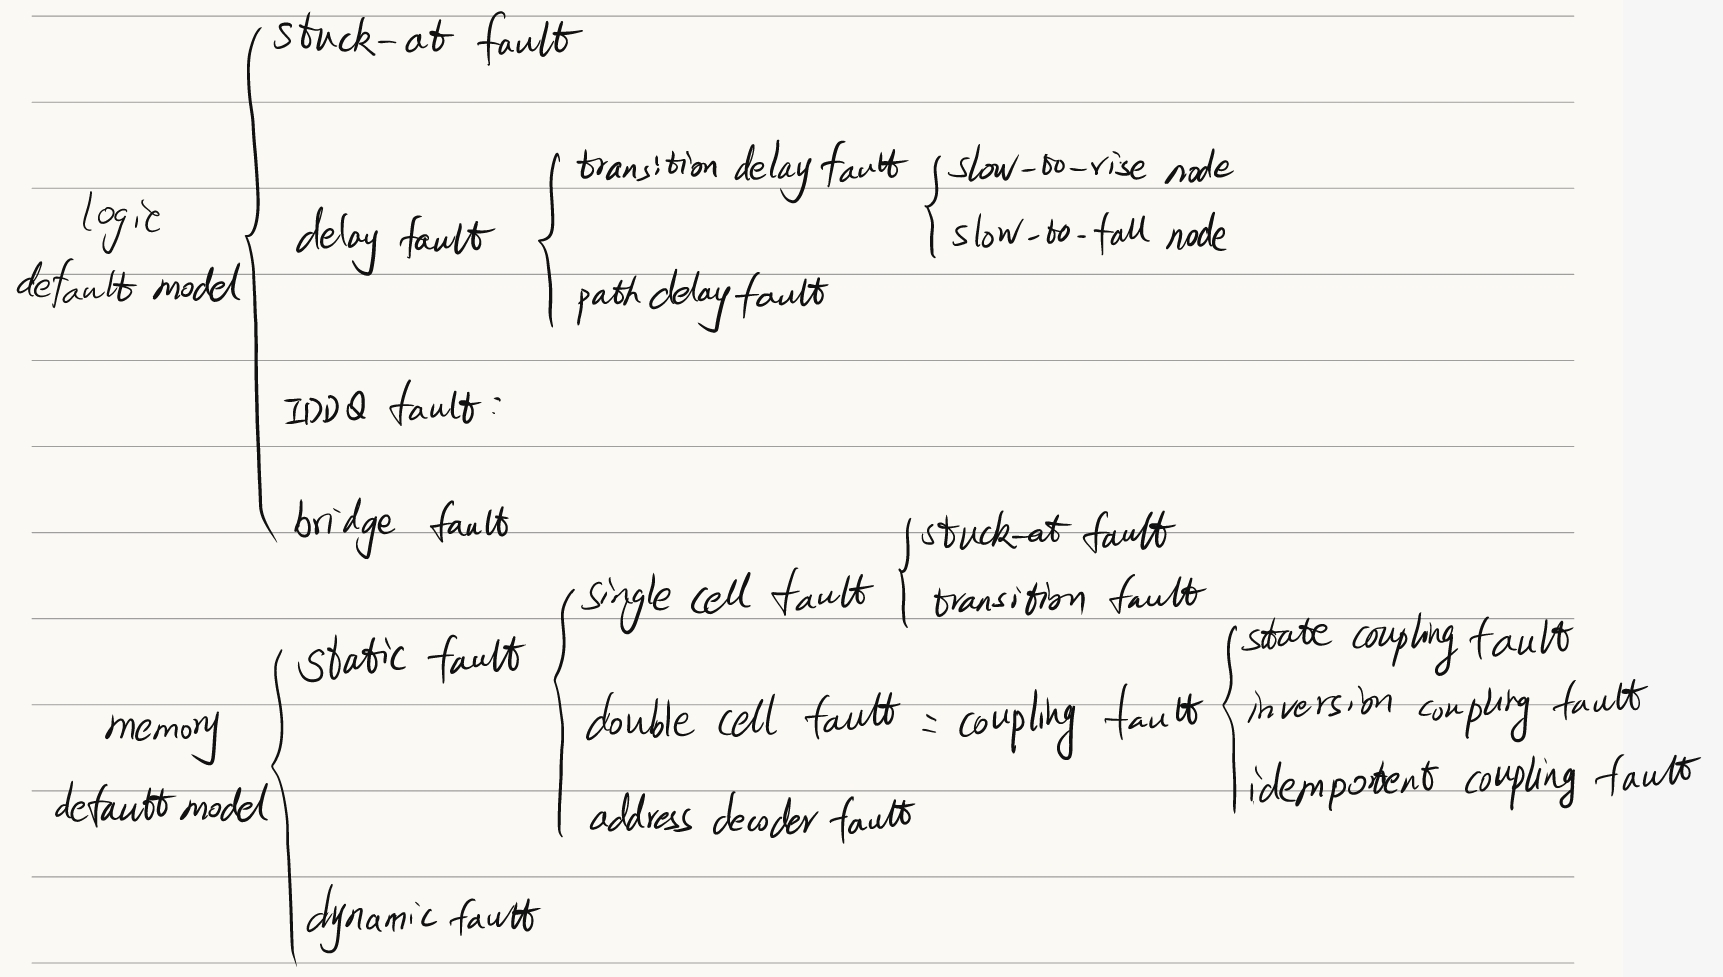 stuck-at fault
transition delay fault
slow-to-rise node
slow-to-fall node
logic
default model
delay fault
path delay fault
IDDQ fault:
bridge fault
single cell fault
stuck-at fault
transition fault
static fault
double cell fault = coupling fault
state coupling fault
inversion coupling fault
idempotent coupling fault
memory
default model
address decoder fault
dynamic fault